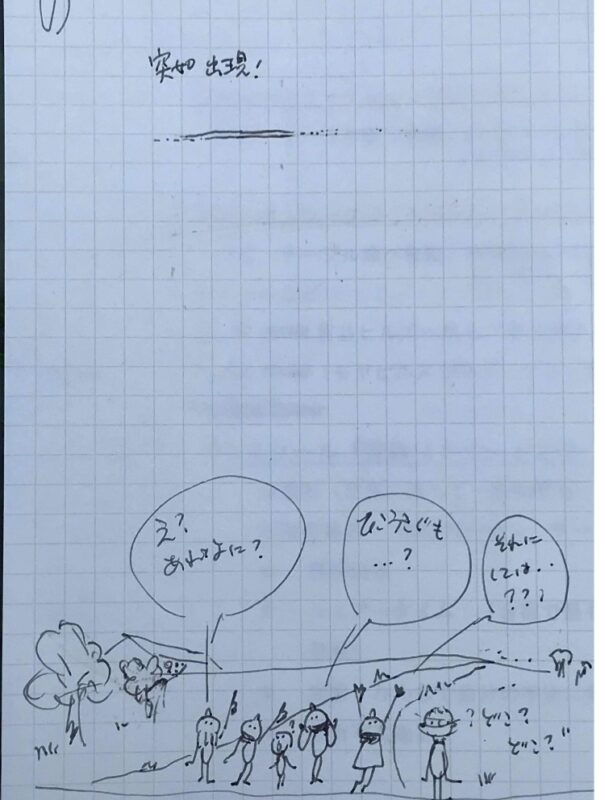 突如出現!
え?
あれなに?
ひこうきぐも
...?
それに
しては..
???
?
?どこ?
どこ?